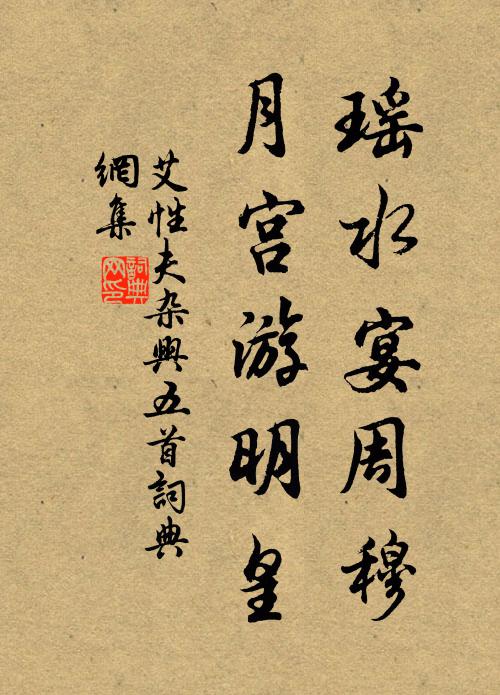 瑶水宴周穆
月宫游明皇
艾性夫杂興五首詞典
網集
詞典
网印